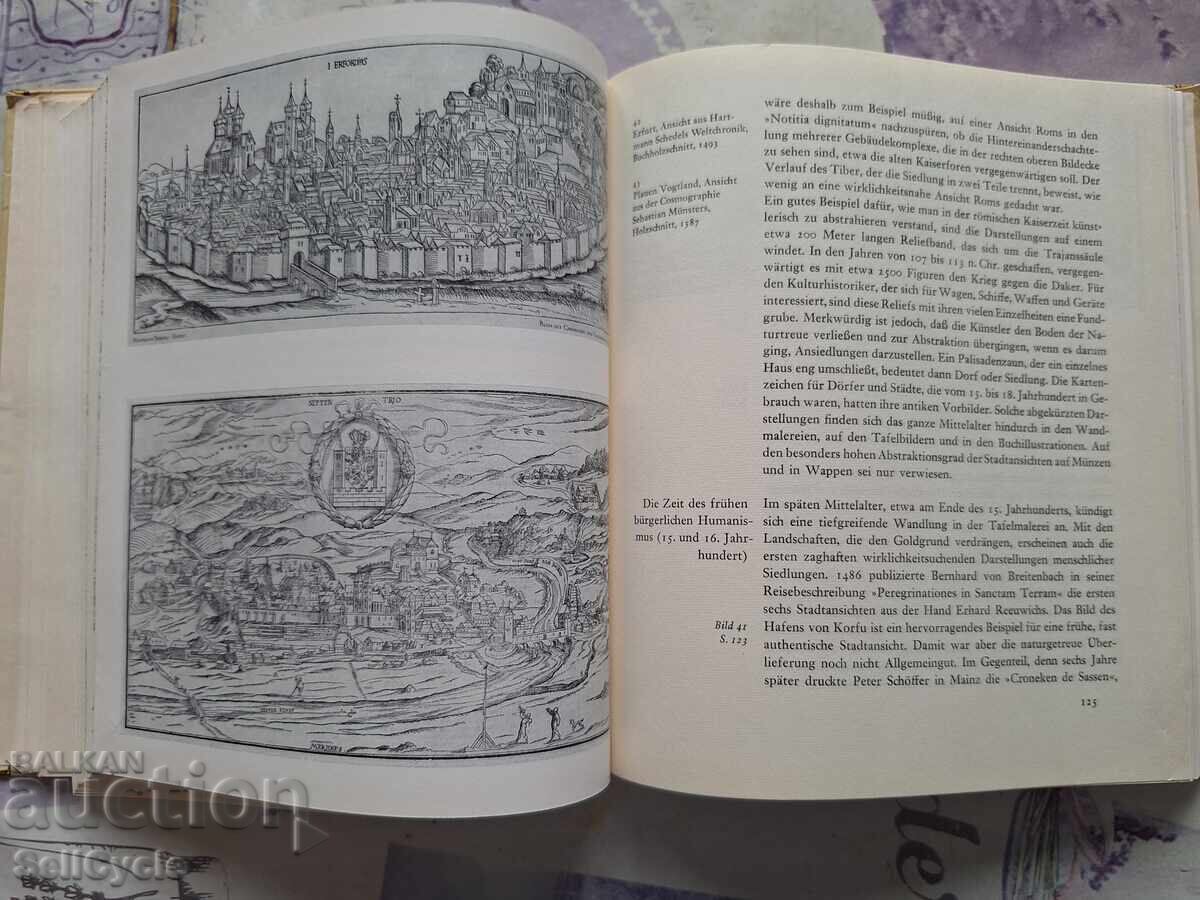 I ERFORDIA
SEPTEN TRIO
MERIDIES
42
Erfurt, Ansicht aus Hart-
mann Schedels Weltchronik,
Buchholzschnitt, 1493
43
Plauen Vogtland, Ansicht
aus der Cosmographie
Sebastian Münsters,
Holzschnitt, 1587
wäre deshalb zum Beispiel müßig, auf einer Ansicht Roms in den
»Notitia dignitatum« nachzuspüren, ob die Hintereinanderschachte-
lung mehrerer Gebäudekomplexe, die in der rechten oberen Bildecke
zu sehen sind, etwa die alten Kaiserforen vergegenwärtigen soll. Der
Verlauf des Tiber, der die Siedlung in zwei Teile trennt, beweist, wie
wenig an eine wirklichkeitsnahe Ansicht Roms gedacht war.
Ein gutes Beispiel dafür, wie man in der römischen Kaiserzeit künst-
lerisch zu abstrahieren verstand, sind die Darstellungen auf einem
etwa 200 Meter langen Reliefband, das sich um die Trajanssäule
windet. In den Jahren von 107 bis 113 n. Chr. geschaffen, vergegen-
wärtigt es mit etwa 2500 Figuren den Krieg gegen die Daker. Für
den Kulturhistoriker, der sich für Wagen, Schiffe, Waffen und Geräte
interessiert, sind diese Reliefs mit ihren vielen Einzelheiten eine Fund-
grube. Merkwürdig ist jedoch, daß die Künstler den Boden der Na-
turtreue verließen und zur Abstraktion übergingen, wenn es darum
ging, Ansiedlungen darzustellen. Ein Palisadenzaun, der ein einzelnes
Haus eng umschließt, bedeutet dann Dorf oder Siedlung. Die Karten-
zeichen für Dörfer und Städte, die vom 15. bis 18. Jahrhundert in Ge-
brauch waren, hatten ihre antiken Vorbilder. Solche abgekürzten Dar-
stellungen finden sich das ganze Mittelalter hindurch in den Wand-
malereien, auf den Tafelbildern und in den Buchillustrationen. Auf
den besonders hohen Abstraktionsgrad der Stadtansichten auf Münzen
und in Wappen sei nur verwiesen.
Die Zeit des frühen
bürgerlichen Humanis-
mus (15. und 16. Jahr-
hundert)
Bild 41
S. 123
Im späten Mittelalter, etwa am Ende des 15. Jahrhunderts, kündigt
sich eine tiefgreifende Wandlung in der Tafelmalerei an. Mit den
Landschaften, die den Goldgrund verdrängen, erscheinen auch die
ersten zaghaften wirklichkeitsuchenden Darstellungen menschlicher
Siedlungen. 1486 publizierte Bernhard von Breitenbach in seiner
Reisebeschreibung »Peregrinationes in Sanctam Terram« die ersten
sechs Stadtansichten aus der Hand Erhard Reeuwichs. Das Bild des
Hafens von Korfu ist ein hervorragendes Beispiel für eine frühe, fast
authentische Stadtansicht. Damit war aber die naturgetreue Über-
lieferung noch nicht Allgemeingut. Im Gegenteil, denn sechs Jahre
später druckte Peter Schöffer in Mainz die »Croneken de Sassen«,
125
BALKAN
auction
SellCycle